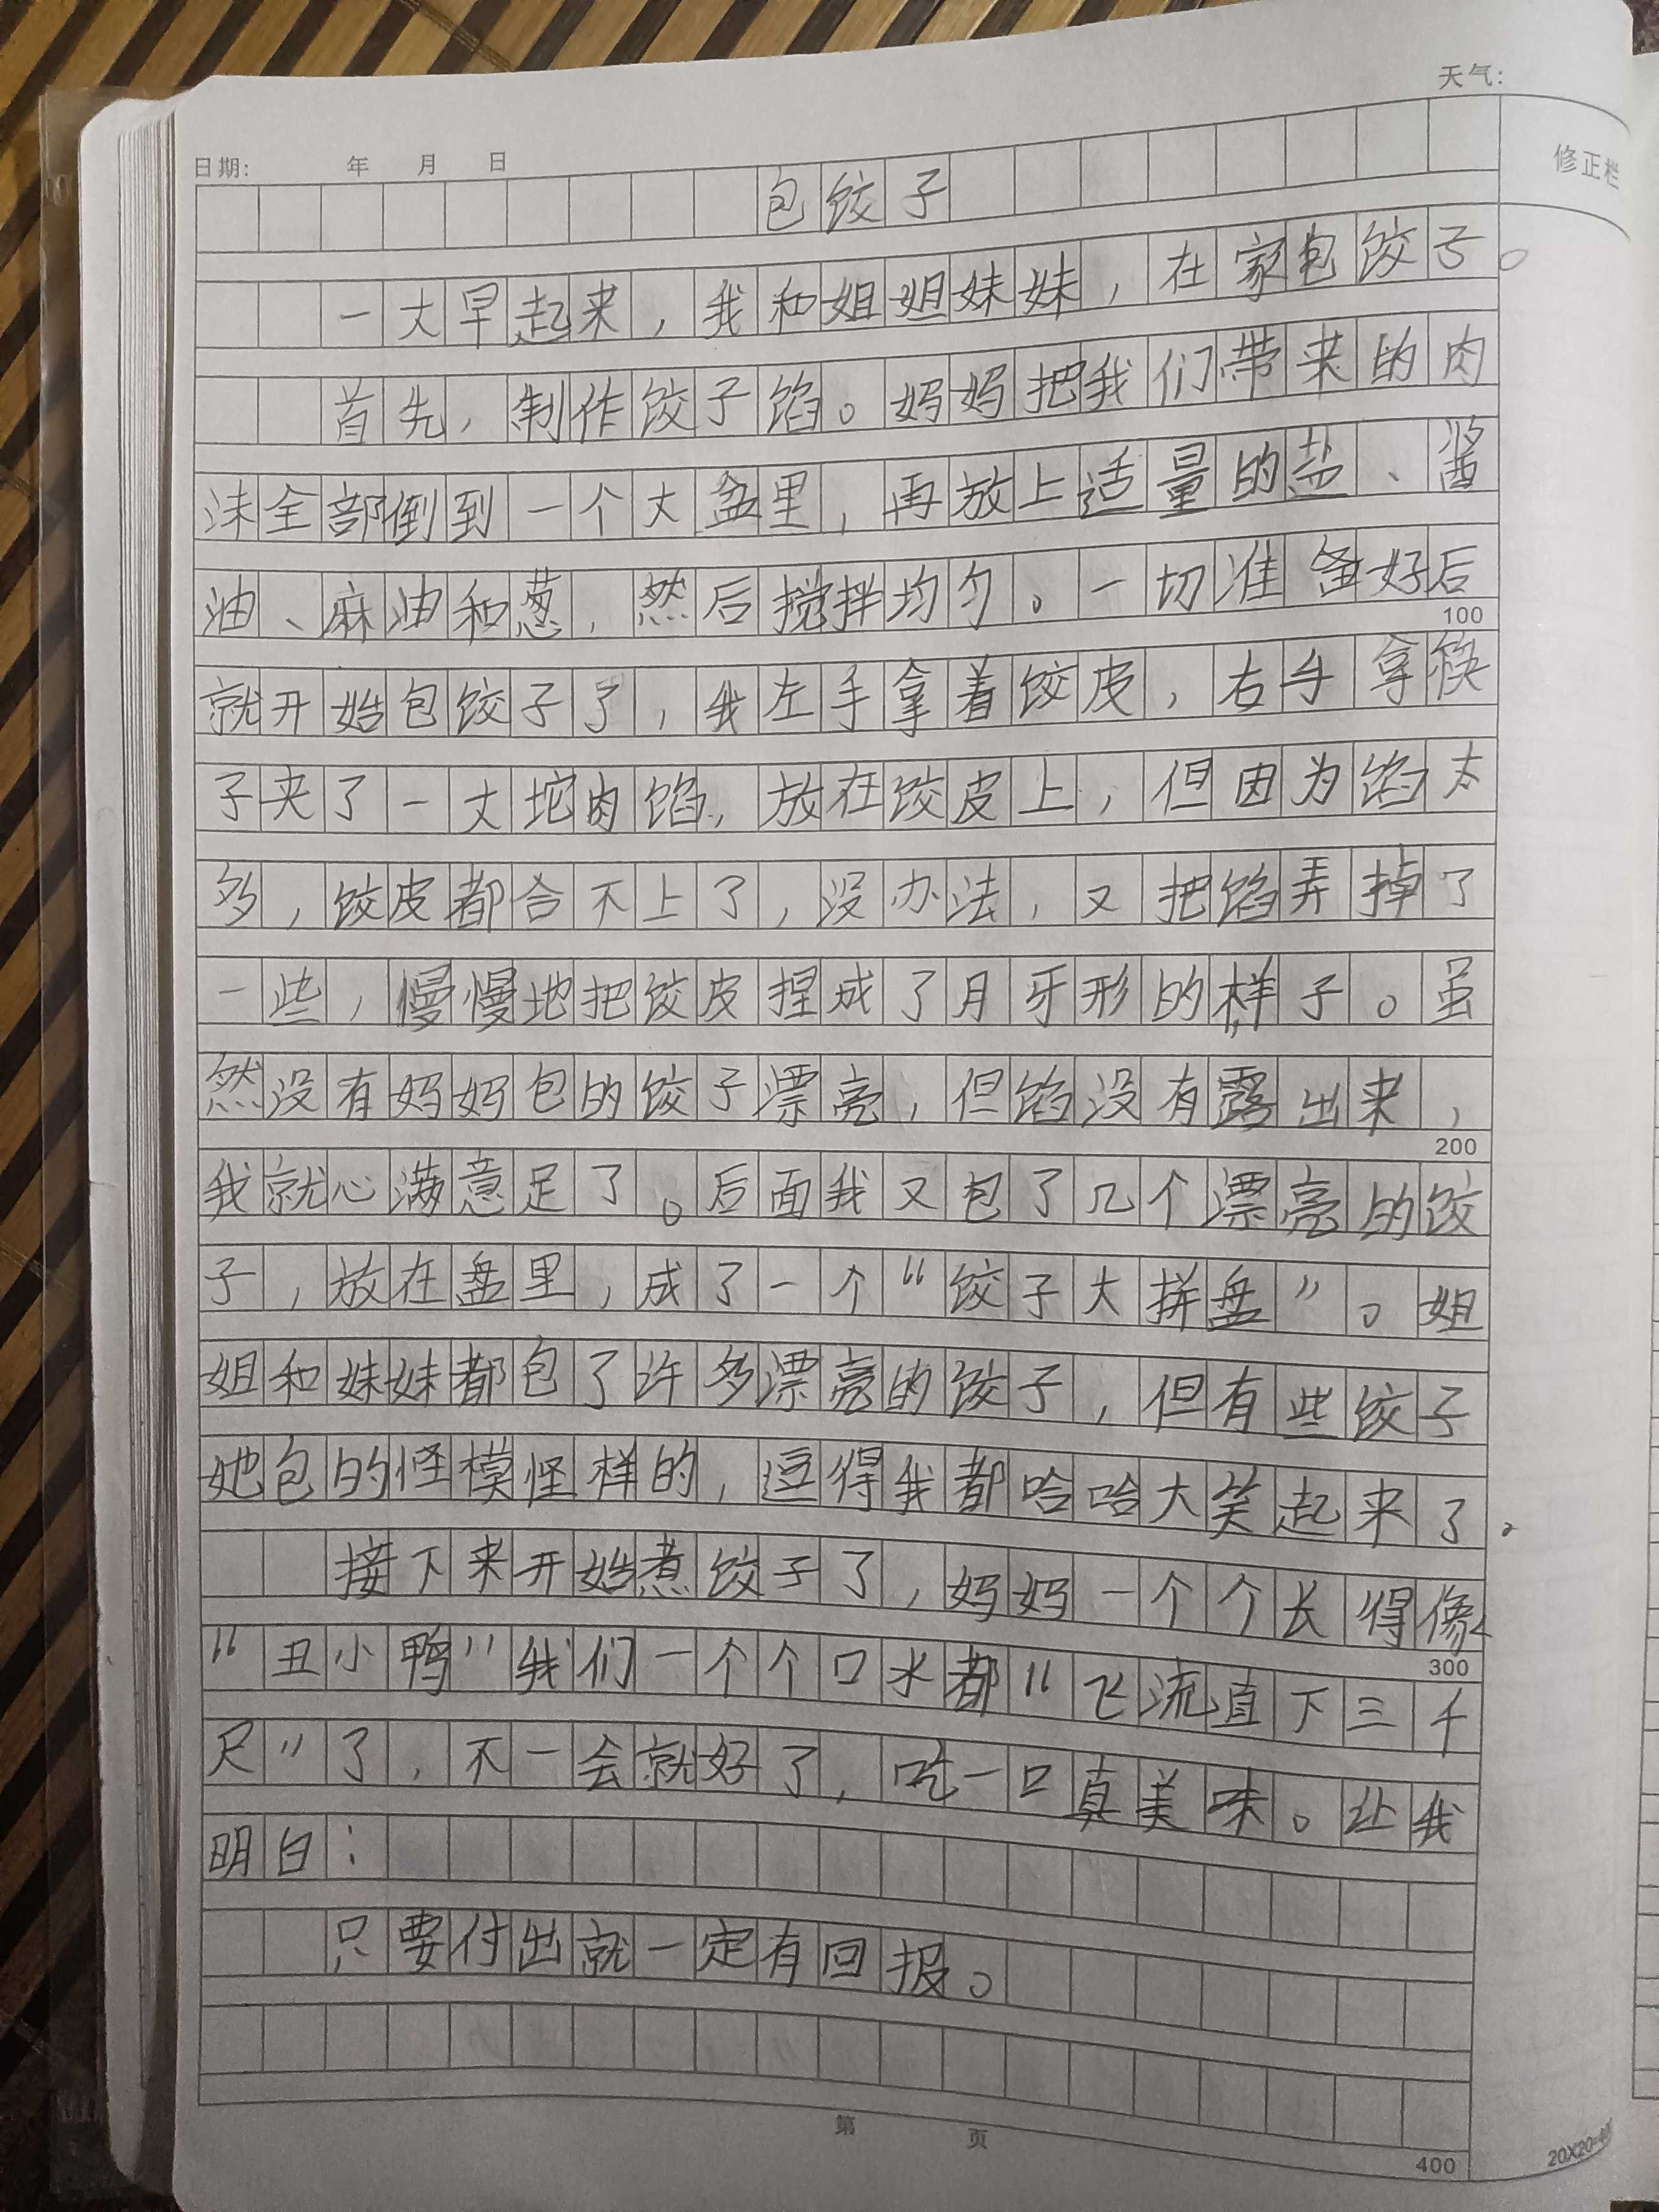 天气:
日期: 年 月 日
修正栏
包饺子
一大早起来，我和姐姐妹妹，在家包饺子。
首先，制作饺子馅。妈妈把我们带来的肉
沫全部倒到一个大盆里，再放上适量的盐、酱
油、麻油和葱，然后搅拌均匀。一切准备好后
100
就开始包饺子了，我左手拿着饺皮，右手拿筷
子夹了一大坨肉馅，放在饺皮上，但因为馅太
多，饺皮都合不上了，没办法，又把馅弄掉了
一些，慢慢地把饺皮捏成了月牙形的样子。虽
然没有妈妈包的饺子漂亮，但馅没有露出来，
200
我就心满意足了。后面我又包了几个漂亮的饺
子，放在盘里，成了一个“饺子大拼盘”。姐
姐和妹妹都包了许多漂亮的饺子，但有些饺子
她包的怪模怪样的，逗得我都哈哈大笑起来了。
接下来开始煮饺子了，妈妈一个个长得像
“丑小鸭”我们一个个口水都“飞流直下三千
300
尺”了，不一会就好了，吃一口真美味。让我
明白：
只要付出就一定有回报。
第 页
400
20X20=400